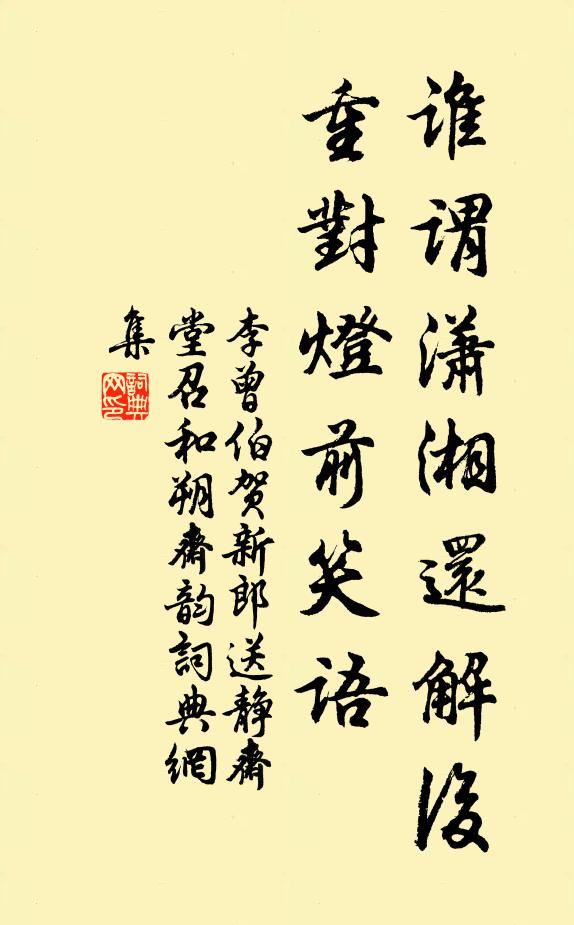 誰謂瀟湘還解後
重對燈前笑語
李曾伯贺新郎送靜齋
堂召和朔齋韵詞典網
集
詞典
网印